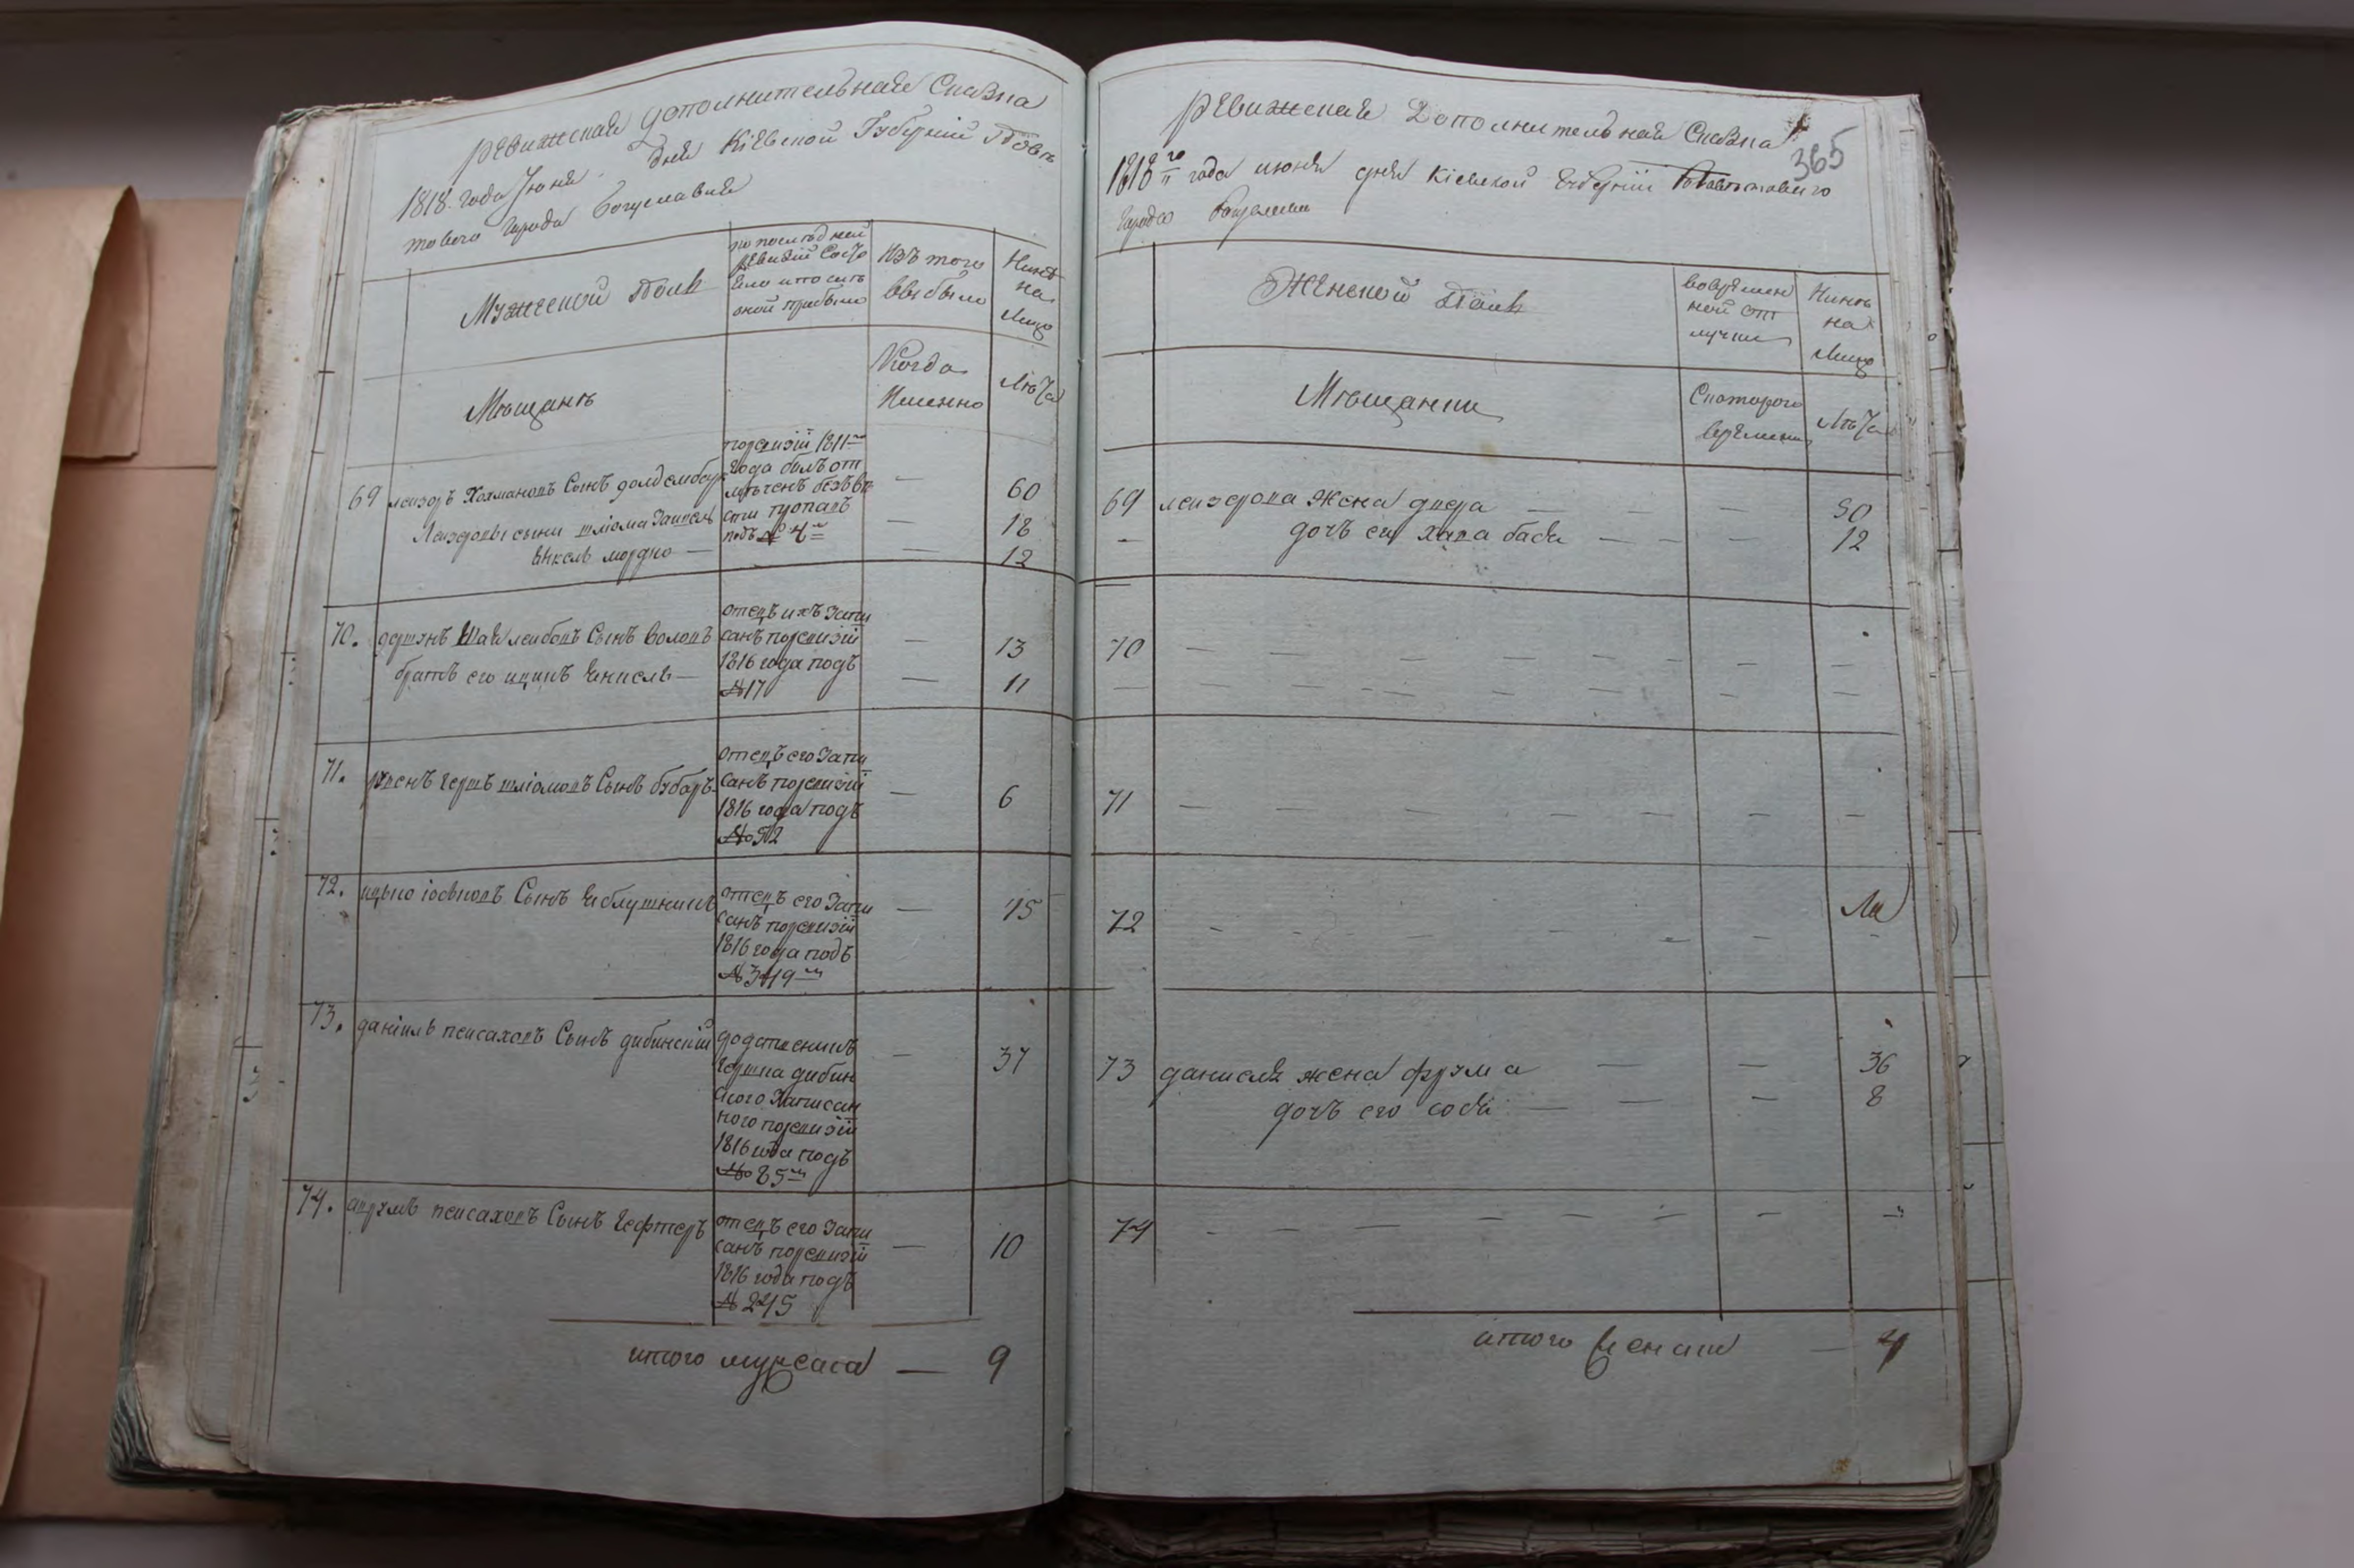 Ревижская дополнительная Сказка
1818. года Июня дня Кіевской Губерніи Повѣ
товаго города Богуславля
Мужеской Полъ
по последней
ревизіи состо
яло и после
оной прибыло
Изъ того
выбыло
Нынѣ
на
лицо
Мѣщанъ
Когда
Именно
Лѣта
69 лейзоръ Хаимановъ Сынъ
Лейзоровы сыны шліома
мордко —
поревизіи 1811го
года былъ от
лученъ безъвѣ
сти пропавъ
подъ № 4м
— 60
— 18
— 12
70. Шая лейбовъ Сынъ воловъ
братъ его ицикъ —
отецъ ихъ запи
санъ поревизіи
1816 года подъ
№ 17
— 13
— 11
71. гершъ шліомовъ Сынъ
отецъ его запи
санъ поревизіи
1816 года подъ
№ 52
— 6
72. іосиповъ Сынъ
отецъ его запи
санъ поревизіи
1816 года подъ
№ 349м
— 15
73. даніилъ пейсаховъ Сынъ дибинскій
родственникъ
гершка дибин
ского записан
ного поревизіи
1816 года подъ
№ 85м
— 37
74. аврумъ пейсаховъ Сынъ Гефтеръ
отецъ его запи
санъ поревизіи
1816 года подъ
№ 245
— 10
итого мужеска — 9
Ревижская Дополнительная Сказка
365
1818го года июня дня Кіевской Губерніи Повѣтоваго
города Богуславля
Женской Полъ
Вовремен
ной от
лучки
Нынѣ
на
лицо
Мѣщанки
Скоторого
времени
Лѣта
69 лейзорова жена двера — — 50
— дочь ея хана бася — — — 12
70 — — — — — — — —
— — — — — — — —
71 — — — — — — — —
72 - - - - - - - -
73 даниеля жена фрума — — 36
дочь его сося — — — 8
74 - — — — — — —
итого женска — 4